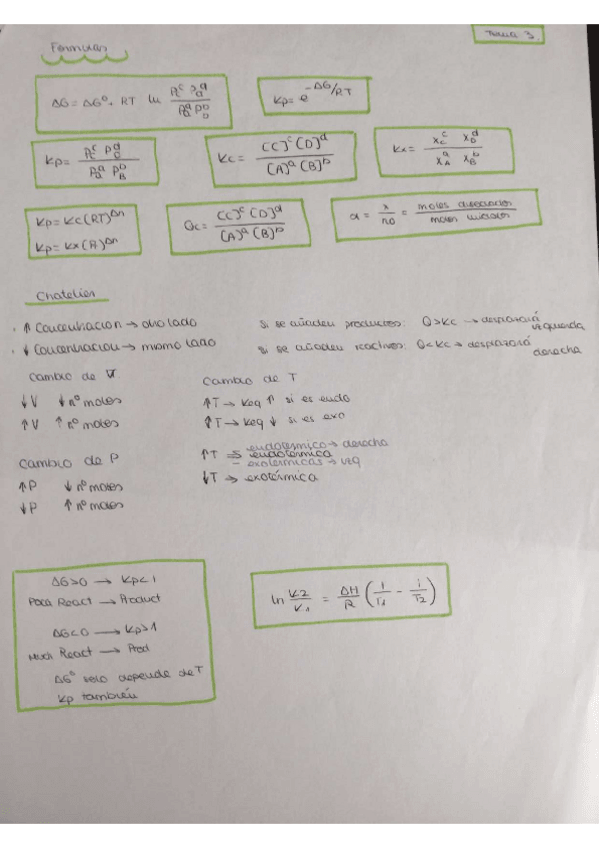 Fórmulas
Tema 3.
ΔG = ΔGº + RT ln Pc^c Pd^d / Pa^a Pb^b
Kp = e^-ΔG/RT
Kp = Pc^c Pd^d / Pa^a PB^b
Kc = [C]^c [D]^d / [A]^a [B]^b
Kx = xC^c xD^d / xA^a xB^b
Kp = Kc (RT)^Δn
Kp = Kx (P)^Δn
Qc = [C]^c [D]^d / [A]^a [B]^b
α = x/n0 = moles disociados / moles iniciales
Chatelier
· ↑ Concentracion → otro lado
· ↓ Concentracion → mismo lado
Si se añaden productos: Q>Kc → desplazará izquierda
Si se añaden reactivos: Q<Kc → desplazará derecha
Cambio de V
↓V ↓ nº moles
↑V ↑ nº moles
Cambio de P
↑P ↓ nº moles
↓P ↑ nº moles
Cambio de T
↑T → Keq ↑ si es endo
↑T → Keq ↓ si es exo
- endotérmico → derecha
↑T → endotérmica
- exotérmicas → izq
↓T → exotérmica
ΔG>0 → Kp<1
Poca React → Product
ΔG<0 → Kp>1
Much React → Prod
ΔGº solo depende de T
Kp también
ln K2/K1 = ΔH/R (1/T1 - 1/T2)